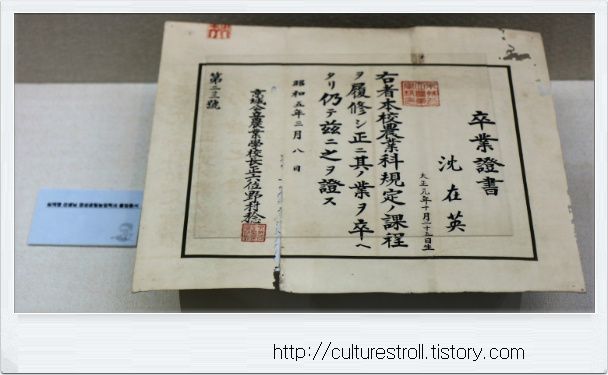 卒業證書
沈在英
大正元年十月二十五日生
右者本校農業科規定ノ課程
ヲ履修シ正ニ其ノ業ヲ卒ヘ
タリ仍テ玆ニ之ヲ證ス
昭和五年三月八日
京城公立農業學校長正六位野村稔
第二三號
http://culturestroll.tistory.com